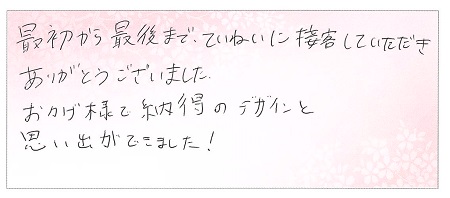 最初から最後まで、ていねいに接客していただき
ありがとうございました。
おかげ様で納得のデザインと
思い出ができました！